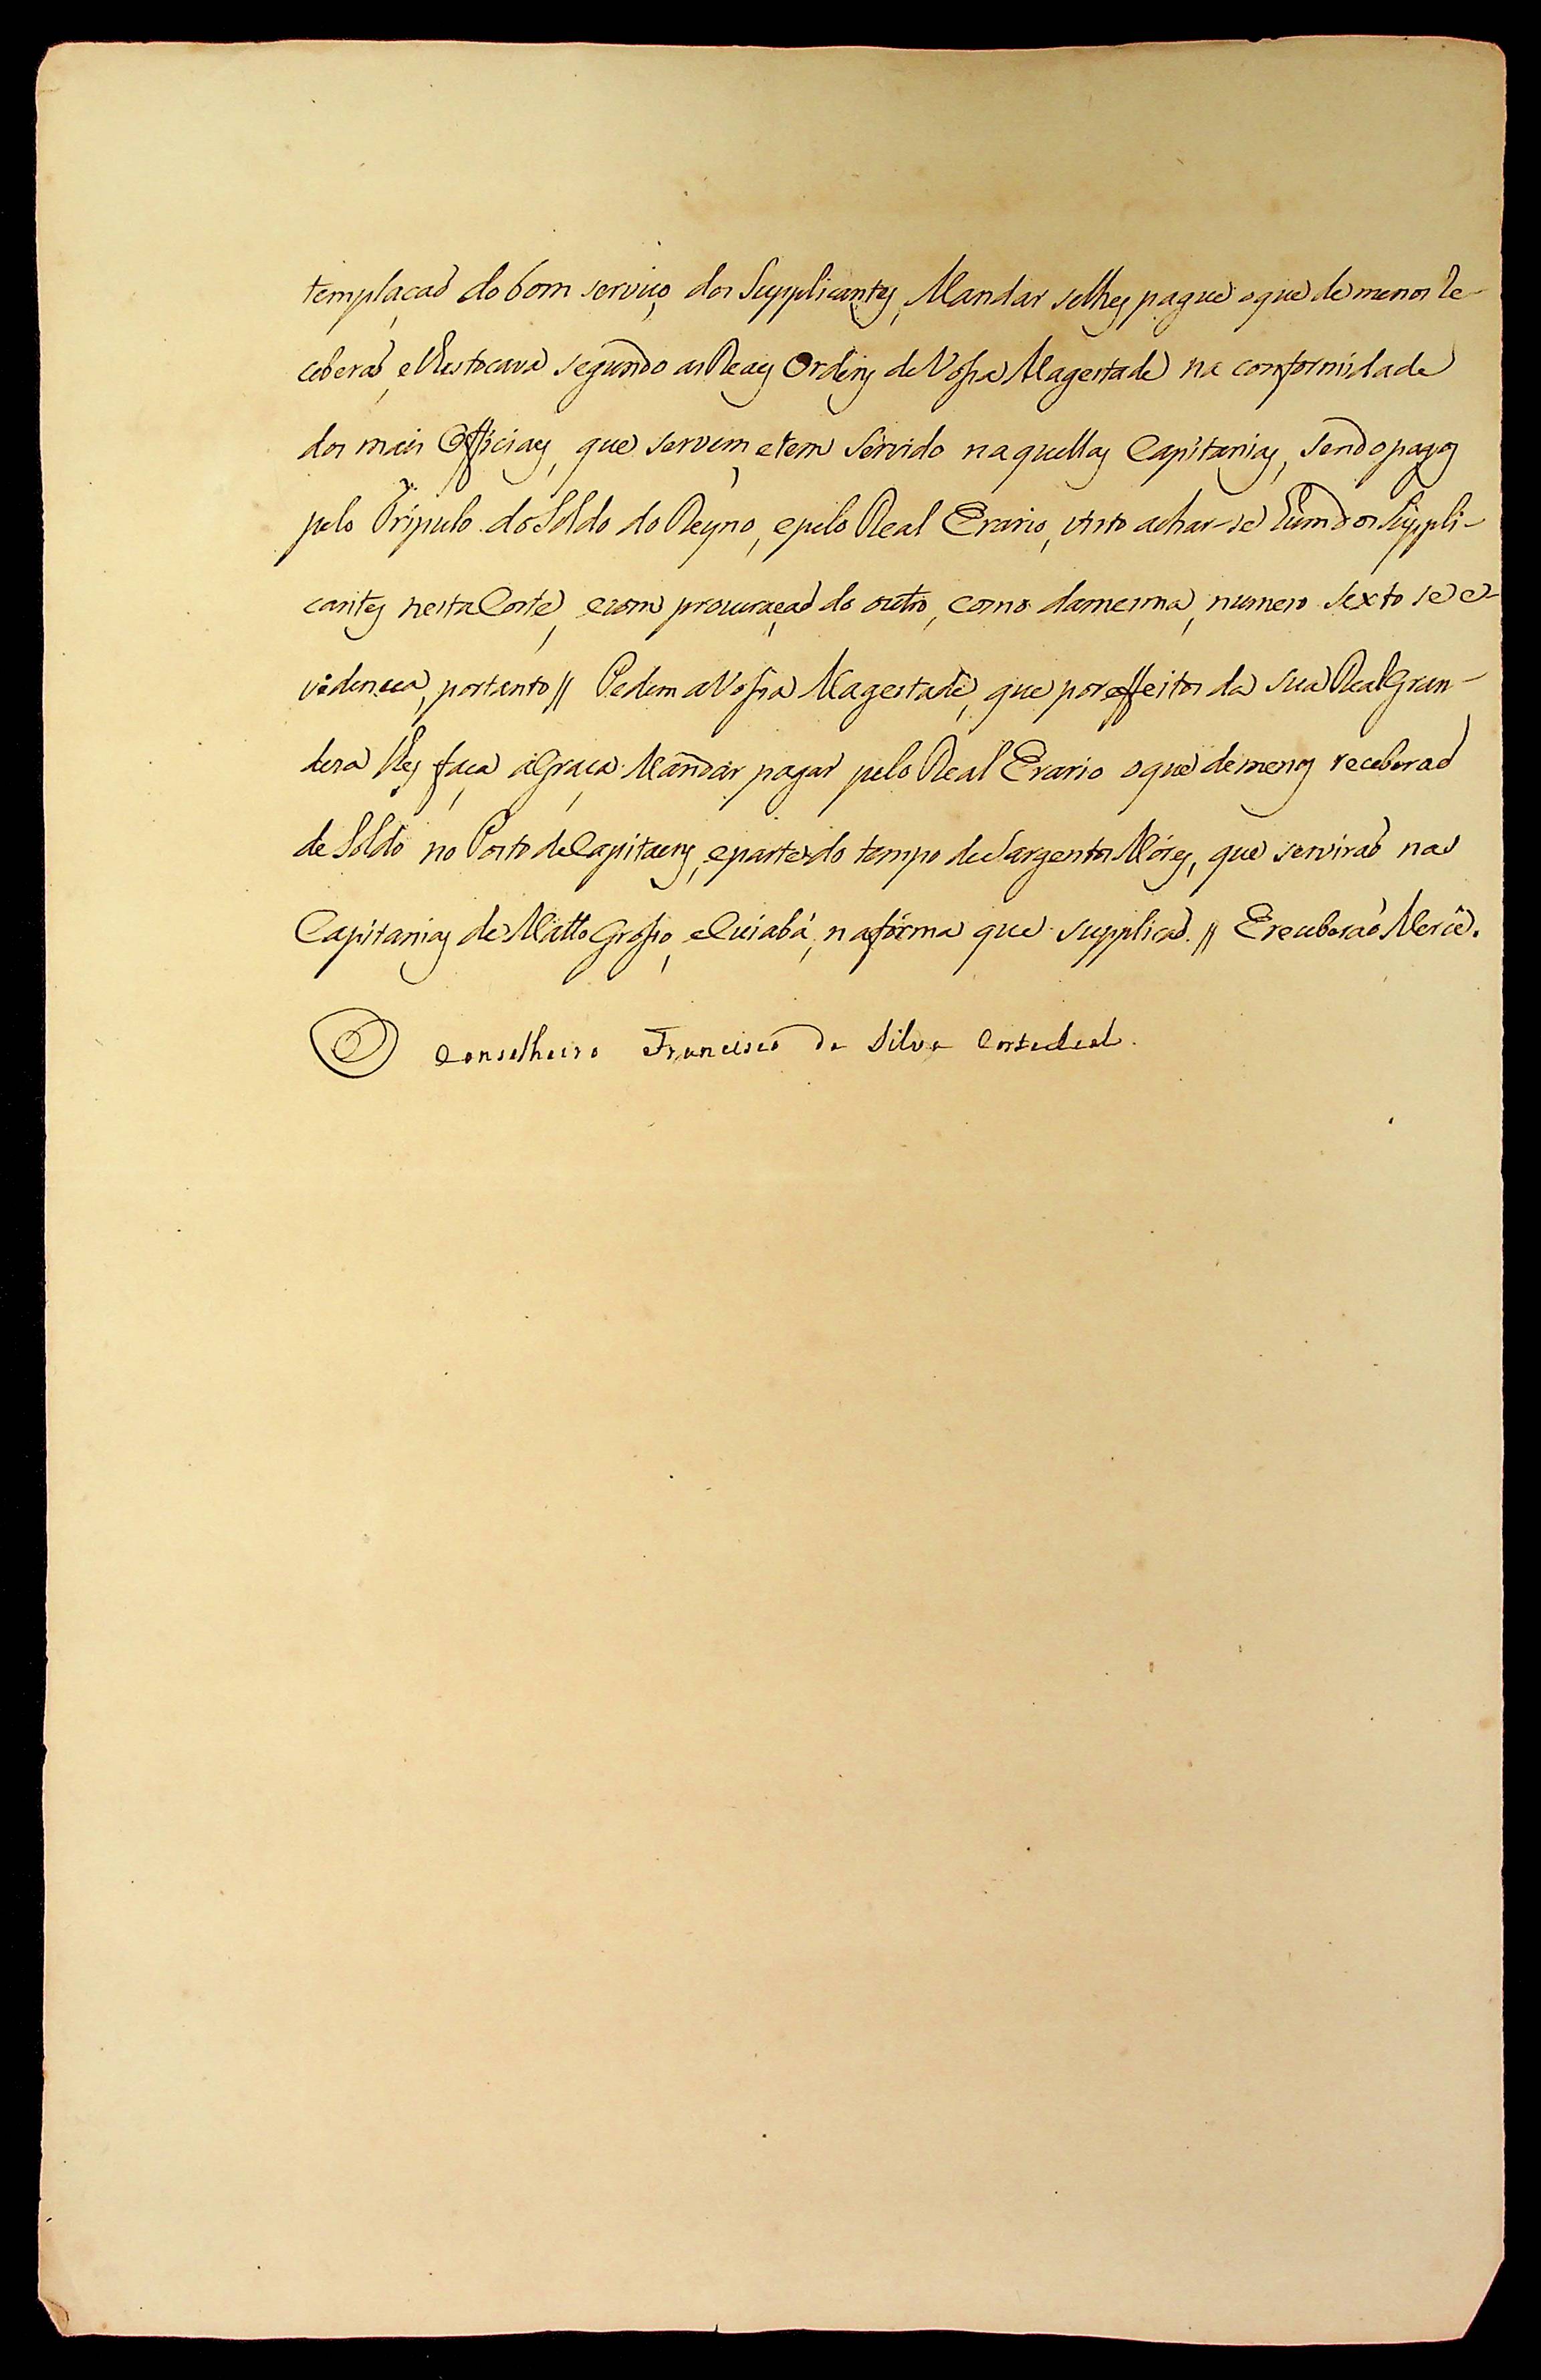 templaçaõ do bom serviço dos Supplicantes, Mandar selhes pague o que de menos re-
ceberaõ, e lhes tocava segundo as Reaes Ordens de Vossa Magestade na conformidade
dos mais Officiaes, que servem, e tem servido naquellas Capitanias, sendo pagos
pelo Tripulo do Soldo do Reyno, e pelo Real Erario, visto achar-se hum dos Suppli-
cantes nesta Corte, e com procuraçaõ do outro, como da mesma, numero sexto se e-
videncea, portanto // Pedem a Vossa Magestade, que por effeitos da sua Real Gran-
desa lhes faça a Graça Mandar pagar pelo Real Erario o que de menos receberaõ
de Soldo no Posto de Capitaens, e parte do tempo de Sargentos Móres, que serviraõ nas
Capitanias de Matto Grosso, e Cuiabá, na fórma que supplicaõ. // E receberaõ Mercê.
O Conselheiro Francisco da Silva Corte Real.